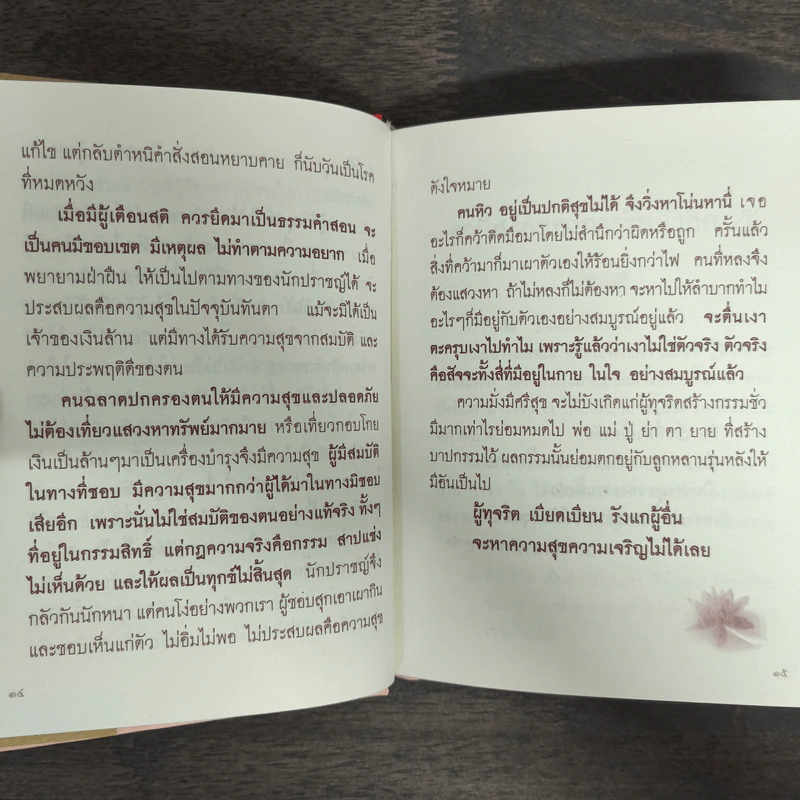 แก้ไข แต่กลับตำหนิคำสั่งสอนหยาบคาย ก็นับวันเป็นโรค
ที่หมดหวัง
เมื่อมีผู้เตือนสติ ควรยึดมาเป็นธรรมคำสอน จะ
เป็นคนมีขอบเขต มีเหตุผล ไม่ทำตามความอยาก เมื่อ
พยายามฝ่าฝืน ให้เป็นไปตามทางของนักปราชญ์ได้ จะ
ประสบผลคือความสุขในปัจจุบันทันตา แม้จะมิได้เป็น
เจ้าของเงินล้าน แต่มีทางได้รับความสุขจากสมบัติ และ
ความประพฤติดีของตน
คนฉลาดปกครองตนให้มีความสุขและปลอดภัย
ไม่ต้องเที่ยวแสวงหาทรัพย์มากมาย หรือเที่ยวกอบโกย
เงินเป็นล้านๆมาเป็นเครื่องบำรุงจึงมีความสุข ผู้มีสมบัติ
ในทางที่ชอบ มีความสุขมากกว่าผู้ได้มาในทางมิชอบ
เสียอีก เพราะนั่นไม่ใช่สมบัติของตนอย่างแท้จริง ทั้งๆ
ที่อยู่ในกรรมสิทธิ์ แต่กฎความจริงคือกรรม สาปแช่ง
ไม่เห็นด้วย และให้ผลเป็นทุกข์ไม่สิ้นสุด นักปราชญ์จึง
กลัวกันนักหนา แต่คนโง่อย่างพวกเรา ผู้ชอบสุกเอาเผากิน
และชอบเห็นแก่ตัว ไม่อิ่มไม่พอ ไม่ประสบผลคือความสุข
๑๔
ดังใจหมาย
คนหิว อยู่เป็นปกติสุขไม่ได้ จึงวิ่งหาโน่นหานี่ เจอ
อะไรก็คว้าติดมือมาโดยไม่สำนึกว่าผิดหรือถูก ครั้นแล้ว
สิ่งที่คว้ามาก็มาเผาตัวเองให้ร้อนยิ่งกว่าไฟ คนที่หลงจึง
ต้องแสวงหา ถ้าไม่หลงก็ไม่ต้องหา จะหาไปให้ลำบากทำไม
อะไรๆก็มีอยู่กับตัวเองอย่างสมบูรณ์อยู่แล้ว จะตื่นเงา
ตะครุบเงาไปทำไม เพราะรู้แล้วว่าเงาไม่ใช่ตัวจริง ตัวจริง
คือสัจจะทั้งสี่ที่มีอยู่ในกาย ในใจ อย่างสมบูรณ์แล้ว
ความมั่งมีศรีสุข จะไม่บังเกิดแก่ผู้ทุจริตสร้างกรรมชั่ว
มีมากเท่าไรย่อมหมดไป พ่อ แม่ ปู่ ย่า ตา ยาย ที่สร้าง
บาปกรรมไว้ ผลกรรมนั้นย่อมตกอยู่กับลูกหลานรุ่นหลังให้
มีอันเป็นไป
ผู้ทุจริต เบียดเบียน รังแกผู้อื่น
จะหาความสุขความเจริญไม่ได้เลย
๑๕